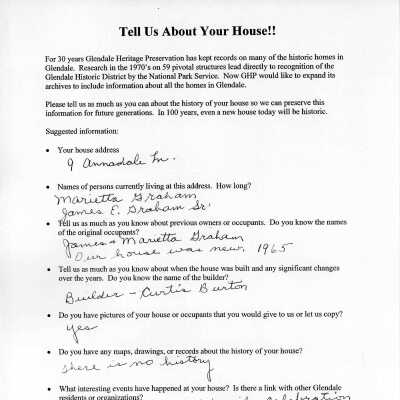 Tell Us About Your House!!
For 30 years Glendale Heritage Preservation has kept records on many of the historic homes in
Glendale. Research in the 1970's on 59 pivotal structures lead directly to recognition of the
Glendale Historic District by the National Park Service. Now GHP would like to expand its
archives to include information about all the homes in Glendale.
Please tell us as much us you can about the history of your house so we can preserve this
information for future generations. In 100 years, even a new house today will be historic.
Suggested information:
• Your house address
9 Annadale Ln.
• Names of persons currently living at this address. How long?
Marietta Graham
James E. Graham Sr.
• Tell us as much as you know about previous owners or occupants. Do you know the names
of the original occupants?
James & Marietta Graham
Our house was new, 1965
• Tell us as much as you know about when the house was built and any significant changes
over the years. Do you know the name of the builder?
Builder - Curtis Burton
• Do you have pictures of your house or occupants that you would give to us or let us copy?
yes
• Do you have any maps, drawings, or records about the history of your house?
there is no history
• What interesting events have happened at your house? Is there a link with other Glendale
residents or organizations?